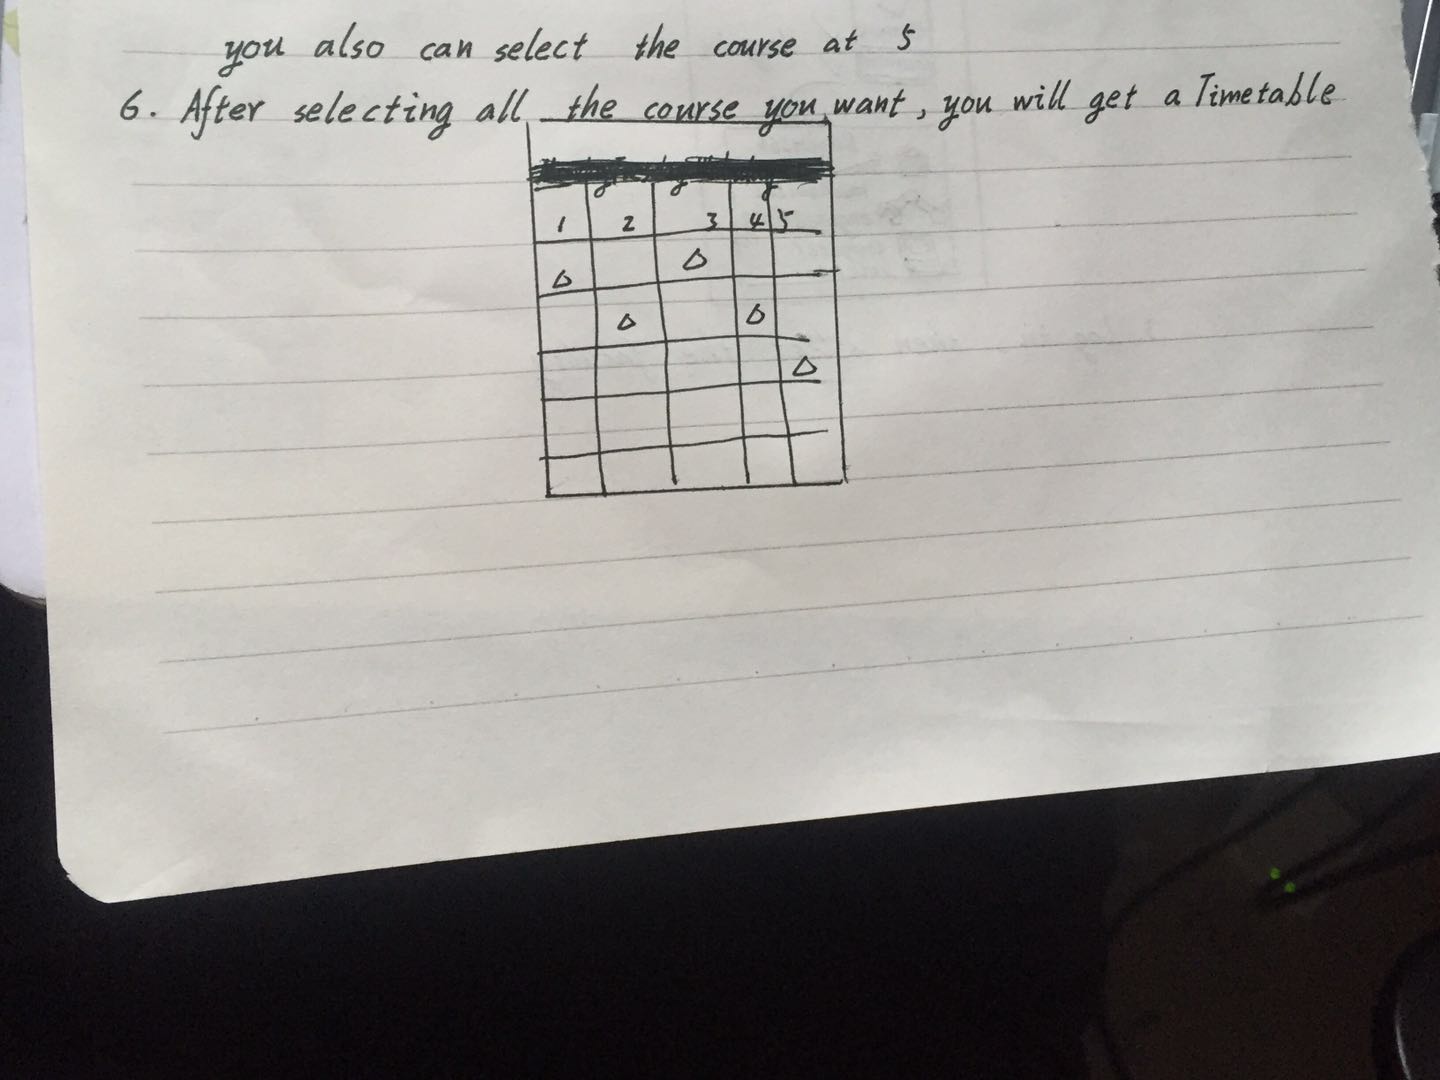 you also can select the course at 5
6. After selecting all the course you want, you will get a Timetable
1 2 3 4 5